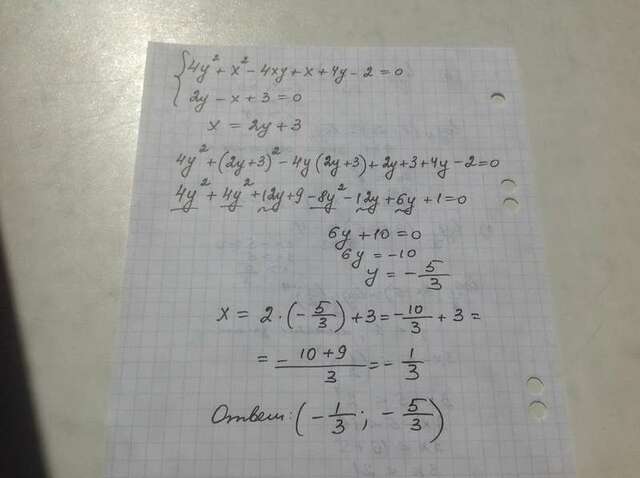 4y² + x² - 4xy + x + 4y - 2 = 0
2y - x + 3 = 0
x = 2y + 3
4y² + (2y+3)² - 4y(2y+3) + 2y + 3 + 4y - 2 = 0
4y² + 4y² + 12y + 9 - 8y² - 12y + 6y + 1 = 0
6y + 10 = 0
6y = -10
y = -5/3
x = 2 · (-5/3) + 3 = -10/3 + 3 =
= -10+9/3 = -1/3
Ответ: (-1/3; -5/3)